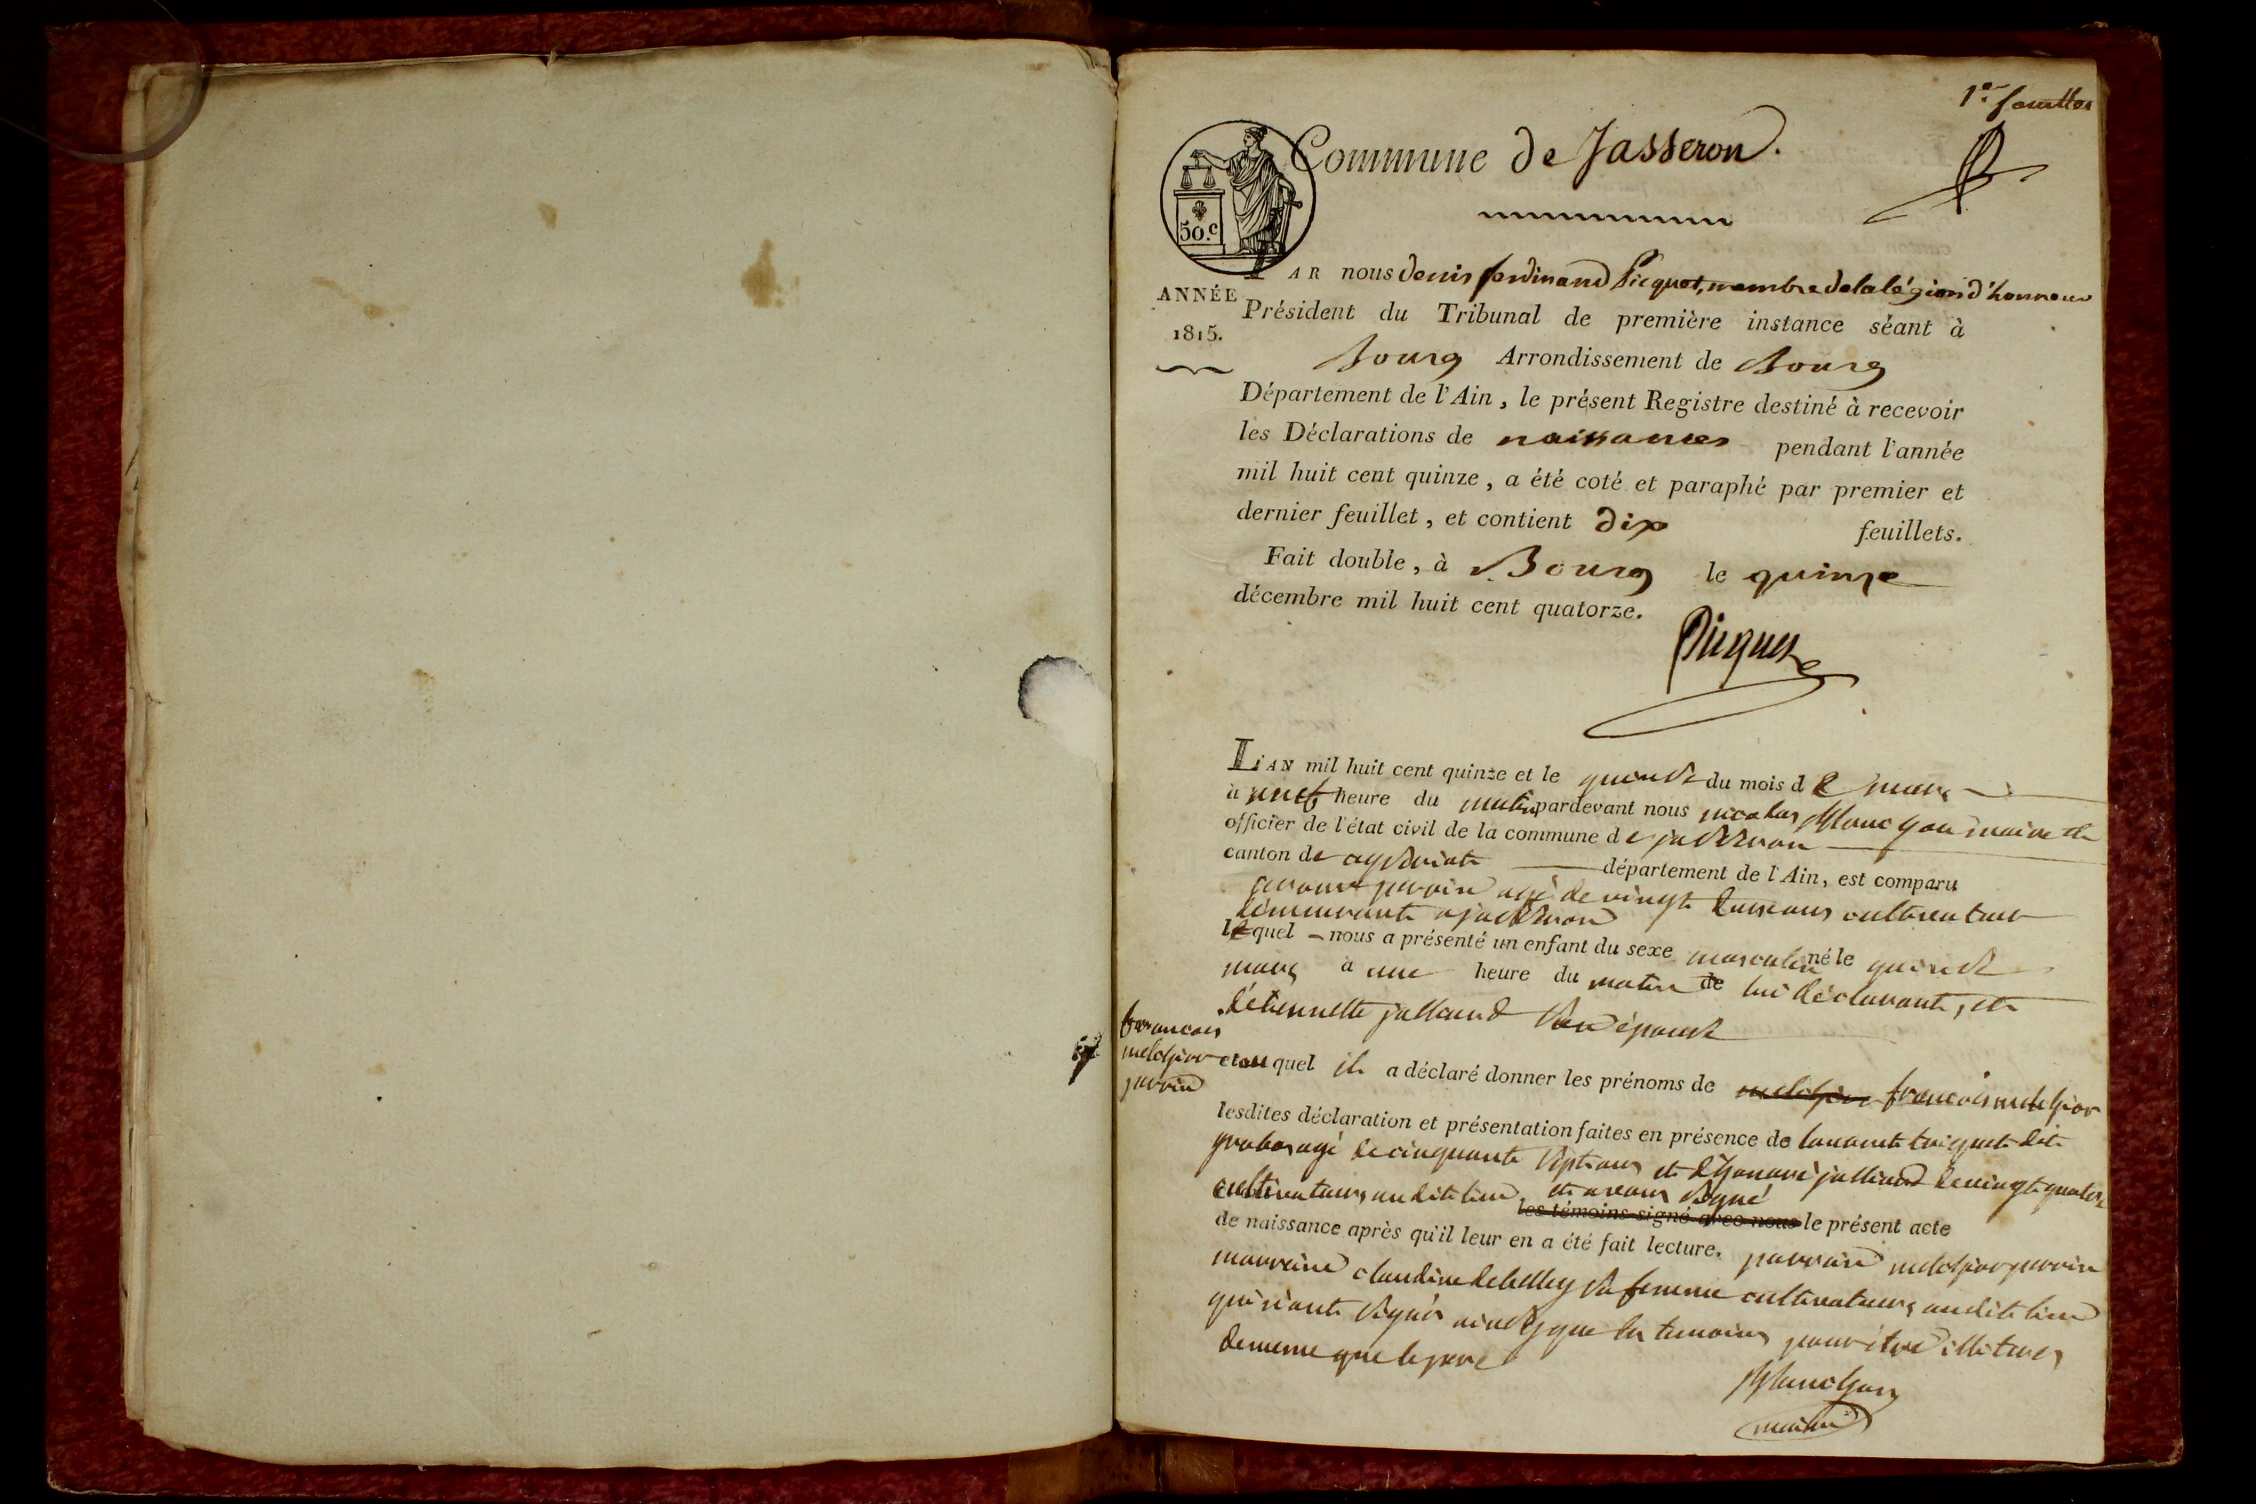 1.er feuillet
Commune de Jasseron.
50.c
PAR nous denis ferdinand Picquet, membre de la légion d'honneur
ANNÉE
1815.
Président du Tribunal de première instance séant à
Bourg Arrondissement de Bourg
Département de l'Ain, le présent Registre destiné à recevoir
les Déclarations de naissances pendant l'année
mil huit cent quinze, a été coté et paraphé par premier et
dernier feuillet, et contient dix feuillets.
Fait double, à Bourg le quinze
décembre mil huit cent quatorze.
Picquet
L'AN mil huit cent quinze et le quinse du mois de mars
à neuf heure du matin pardevant nous nicolas maire et
officier de l'état civil de la commune de jasseron
canton de département de l'Ain, est comparu
perrin agé de vingt ans cultivateur
demeurant a jasseron
lequel nous a présenté un enfant du sexe masculin né le quinse
mars à une heure du matin de lui déclarant, et
détiennette son épouse
francois
melchior
perrin
et au quel il a déclaré donner les prénoms de melchior francois melchior
lesdites déclaration et présentation faites en présence de dit
agé de cinquante sept ans et de vingt quatre
cultivateurs audit lieu, et avons signé
les témoins signé avec nous le présent acte
de naissance après qu'il leur en a été fait lecture. parrain melchior perrin
marraine claudine sa femme cultivateurs audit lieu
qui n'ont signés ainsy que les temoins pour être illiteres
de meme que le pere
maire